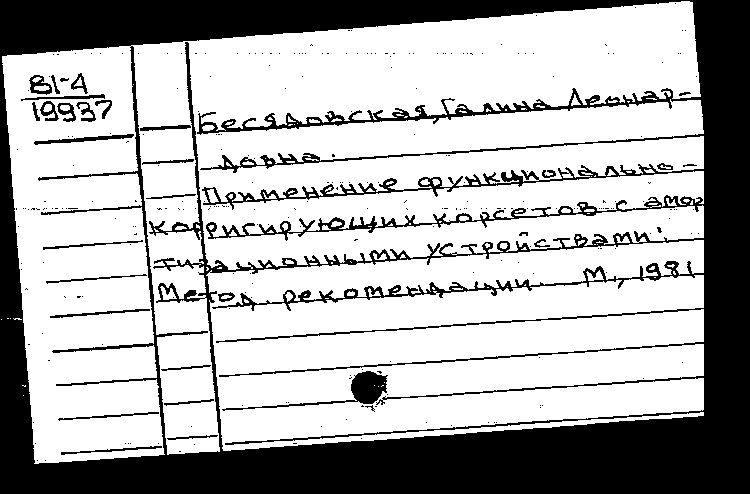 81-4
19937
Бесядовская, Галина Леонар-
довна.
Применение функционально-
корригирующих корсетов с амор
тизационными устройствами:
Метод. рекомендации. М., 1981